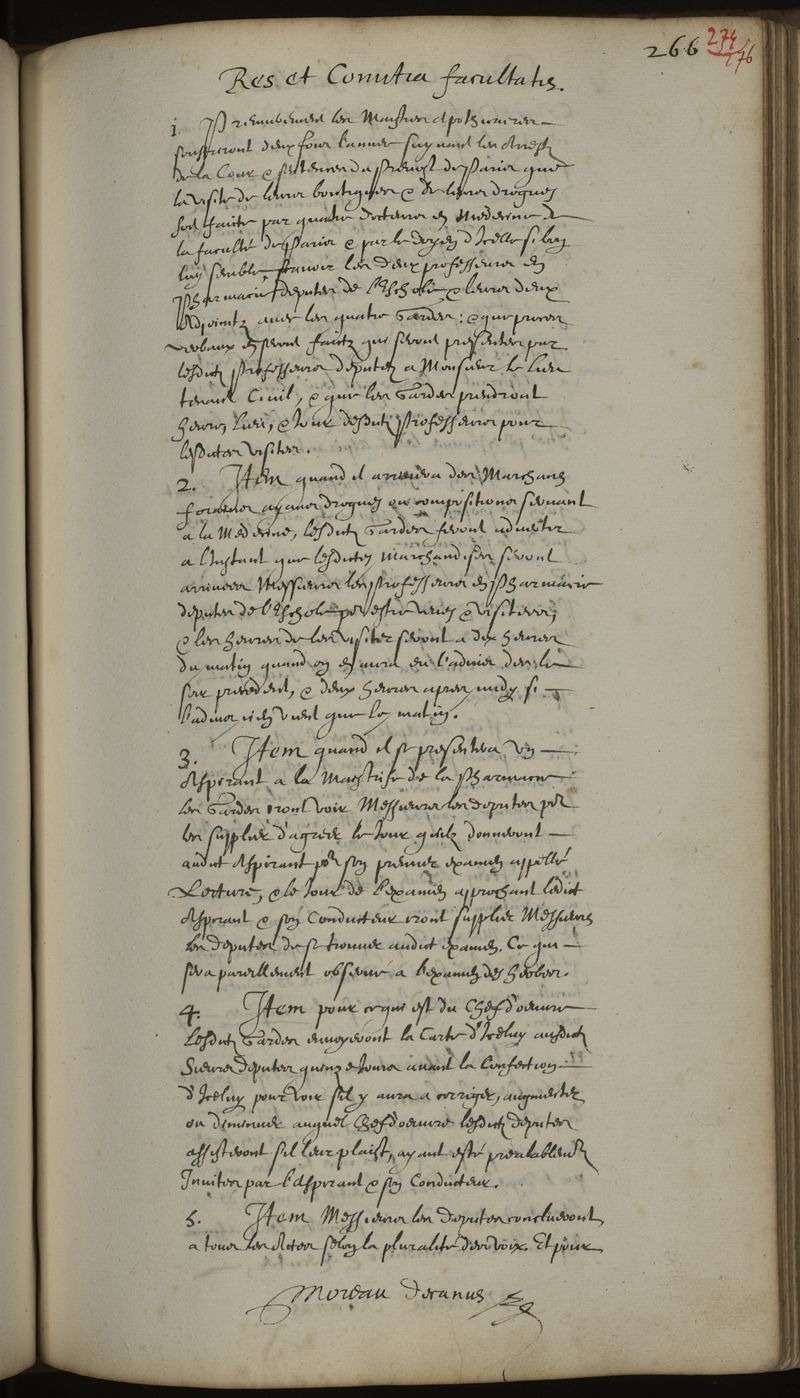 266 274
276
Res et Comitia facultatis.
1. Premierement les Maistres Apothicaires
souffriront deux fois l'annee suyvant les Arrests
de la Cour & sentences du Prevost de Paris que
la visite de leurs boutiques & de leurs drogues
soit faicte par quatre docteurs en Medecine de
la faculté de Paris & par le doyen d'Icelle si bon
luy semble, scavoir les deux professeurs en
Pharmacie deputez de l'Eschole & leurs deux
Adjointz avec les quatre Gardes: & que procez
verbaux en seront faictz qui seront presentez par
lesdictz Professeurs deputez a Monsieur le Lieu
tenant Civil, & que les Gardes prendront
heures, lieu, & Jour desdictz Professeurs pour
lesdictes visites.
2. Item quand il arrivera des Marchans
forains ayans drogues ou compositions servant
a la Medecine, lesdictz Gardes feront advertir
a l'Instant que lesdictes Marchandises seront
arrivees Messieurs les Professeurs en Pharmacie
deputez de l'Eschole pour estre veues & visitees,
& les heures de les visiter seront a dix heures
du matin quand on en aura eu l'advis des le
soir precedent, & deux heures apres midy si
l'advis n'en vient que le matin.
3. Item quand il se presentera un
Aspirant a la Maistrise de la Pharmacie
les Gardes iront voir Messieurs les deputez pour
les supplier d'agreer le Jour qu'ilz donneront
audict Aspirant pour son premier examen appellé
Lecture, & le Jour de l'examen approchant ledict
Aspirant & son Conducteur iront supplier Messieurs
les deputez de se trouver audict examen. Ce qui
sera pareillement observé a l'examen des herbes.
4. Item pour ce qui est du Chef d'oeuvre
Lesdictz Gardes envoyeront la Carte d'Iceluy ausdictz
Sieurs deputez quinze Jours avant la Confection
d'Iceluy pour voir s'il y aura a corriger, augmenter
ou diminuer auquel Chef d'oeuvre lesdictz deputez
assisteront s'il leur plaist, ayant esté prealablement
Invitez par l'Aspirant & son Conducteur.
5. Item Messieurs les deputez conclueront
a tous les Actes selon la pluralité des voix. Et pour
Moreau Decanus